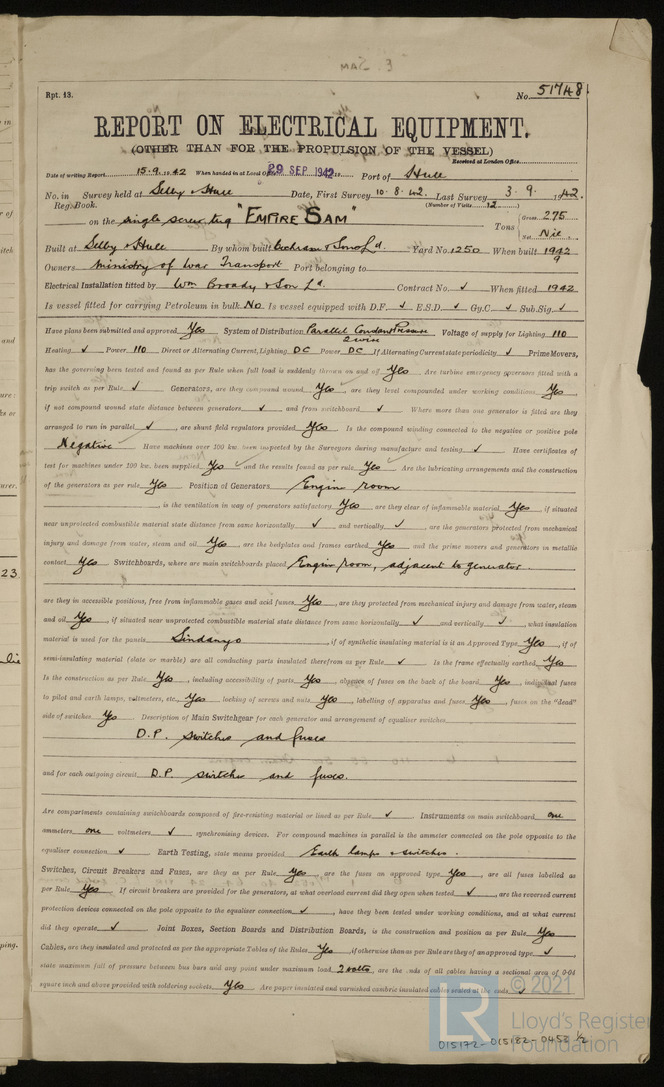 Rpt. 13.
No. 51748
REPORT ON ELECTRICAL EQUIPMENT.
(OTHER THAN FOR THE PROPULSION OF THE VESSEL)
Received at London Office
Date of writing Report 15.9.1942 When handed in at Local Office 29 SEP 1942 19 Port of Hull
No. in Survey held at Selby & Hull Date, First Survey 10.8.42. Last Survey 3.9.1942.
Reg. Book. (Number of Visits 12)
on the single screw tug "EMPIRE SAM" Tons { Gross 275
Net Nil
Built at Selby & Hull By whom built Cochrane & Sons Ld. Yard No. 1250 When built 1942
9
Owners Ministry of War Transport Port belonging to
Electrical Installation fitted by Wm Broady & Son Ld. Contract No. ✓ When fitted 1942
Is vessel fitted for carrying Petroleum in bulk No Is vessel equipped with D.F. ✓ E.S.D. ✓ Gy.C. ✓ Sub.Sig. ✓
Have plans been submitted and approved Yes System of Distribution Parallel Constant Pressure Voltage of supply for Lighting 110
2 wire
Heating ✓ Power 110 Direct or Alternating Current, Lighting DC Power DC If Alternating Current state periodicity ✓ Prime Movers,
has the governing been tested and found as per Rule when full load is suddenly thrown on and off Yes Are turbine emergency governors fitted with a
trip switch as per Rule ✓ Generators, are they compound wound Yes, are they level compounded under working conditions Yes,
if not compound wound state distance between generators ✓ and from switchboard ✓ Where more than one generator is fitted are they
arranged to run in parallel ✓, are shunt field regulators provided Yes Is the compound winding connected to the negative or positive pole
Negative Have machines over 100 kw. been inspected by the Surveyors during manufacture and testing ✓ Have certificates of
test for machines under 100 kw. been supplied Yes ✓ and the results found as per rule Yes ✓ Are the lubricating arrangements and the construction
of the generators as per rule Yes Position of Generators Engine room
, is the ventilation in way of generators satisfactory Yes, are they clear of inflammable material Yes if situated
near unprotected combustible material state distance from same horizontally ✓ and vertically ✓, are the generators protected from mechanical
injury and damage from water, steam and oil Yes, are the bedplates and frames earthed Yes and the prime movers and generators in metallic
contact Yes Switchboards, where are main switchboards placed Engine room, adjacent to generator.
are they in accessible positions, free from inflammable gases and acid fumes Yes, are they protected from mechanical injury and damage from water, steam
and oil Yes, if situated near unprotected combustible material state distance from same horizontally ✓ and vertically ✓, what insulation
material is used for the panels Sindanyo, if of synthetic insulating material is it an Approved Type Yes, if of
semi-insulating material (slate or marble) are all conducting parts insulated therefrom as per Rule ✓ Is the frame effectually earthed Yes
Is the construction as per Rule Yes, including accessibility of parts Yes, absence of fuses on the back of the board Yes, individual fuses
to pilot and earth lamps, voltmeters, etc. Yes locking of screws and nuts Yes, labelling of apparatus and fuses Yes, fuses on the "dead"
side of switches Yes Description of Main Switchgear for each generator and arrangement of equaliser switches
D.P. switches and fuses
and for each outgoing circuit D.P. switches and fuses.
Are compartments containing switchboards composed of fire-resisting material or lined as per Rule ✓ Instruments on main switchboard one
ammeters one voltmeters ✓ synchronising devices. For compound machines in parallel is the ammeter connected on the pole opposite to the
equaliser connection ✓ Earth Testing, state means provided Earth lamps & switches.
Switches, Circuit Breakers and Fuses, are they as per Rule Yes, are the fuses an approved type Yes, are all fuses labelled as
per Rule Yes If circuit breakers are provided for the generators, at what overload current did they open when tested ✓, are the reversed current
protection devices connected on the pole opposite to the equaliser connection ✓, have they been tested under working conditions, and at what current
did they operate ✓ Joint Boxes, Section Boards and Distribution Boards, is the construction and position as per Rule Yes
Cables, are they insulated and protected as per the appropriate Tables of the Rules Yes, if otherwise than as per Rule are they of an approved type ✓,
state maximum fall of pressure between bus bars and any point under maximum load 2 volts, are the ends of all cables having a sectional area of 0·04
square inch and above provided with soldering sockets Yes Are paper insulated and varnished cambric insulated cables sealed at the ends ✓
© 2021
LR
Lloyd's Register
Foundation
015172-015182-0453 1/2